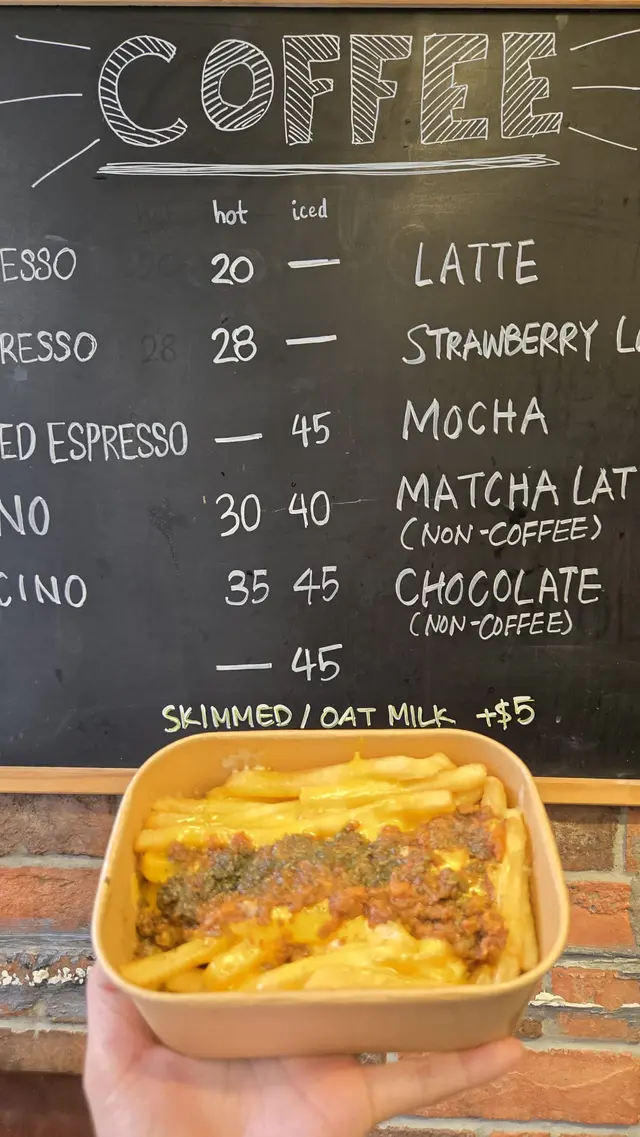 COFFEE
hot iced
ESSO 20 — LATTE
RESSO 28 — STRAWBERRY L
ED ESPRESSO — 45 MOCHA
NO 30 40 MATCHA LAT
(NON-COFFEE)
CINO 35 45 CHOCOLATE
(NON-COFFEE)
— 45
SKIMMED / OAT MILK +$5